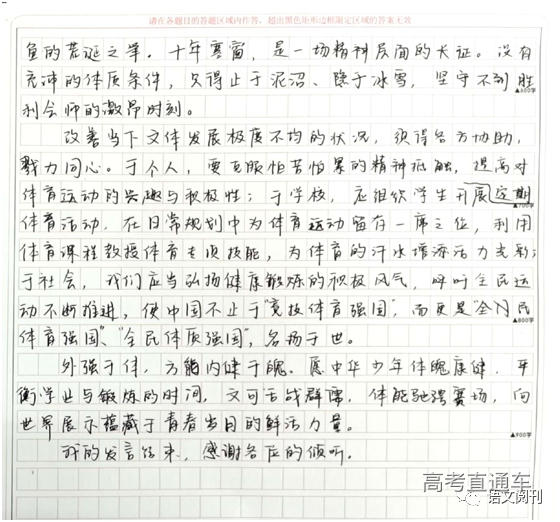 请在各题目的答题区域内作答，超出黑色矩形边框限定区域的答案无效
鱼的荒诞之举。十年寒窗，是一场精神层面的长征。没有
充沛的体质条件，只得止于泥沼、隐于冰雪，坚守不到胜
▲600字
利会师的激昂时刻。
改善当下文体发展极度不均的状况，须得各方协助，
戮力同心。于个人，要克服怕苦怕累的精神抵触，提高对
体育运动的兴趣与积极性；于学校，应组织学生开展定期
▲700字
体育活动，在日常规划中为体育运动留有一席之位，利用
体育课程教授体育专项技能，为体育的汗水增添活力光彩；
于社会，我们应当弘扬健康锻炼的积极风气，呼吁全民运
动不断推进，使中国不止于“竞技体育强国”，而更是“全民
▲800字
体育强国”、“全民体质强国”，名扬于世。
外强于体，方能内健于魄。愿中华少年体魄康健，平
衡学业与锻炼的时间，文可舌战群儒，体能驰骋赛场，向
世界展示蕴藏于青春岁月的鲜活力量。
▲900字
我的发言结束，感谢各位的倾听。
高考直通车
语文阅刊